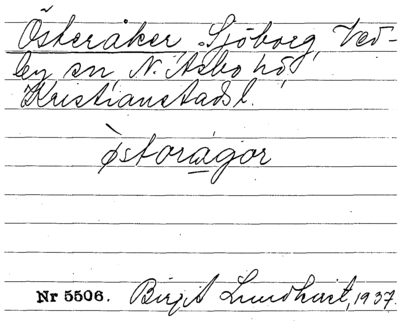 Österåker, Sjöborg, Ved-
by sn, N. Åsbo hd,
Kristianstads l.
østorågor
Nr 5506. Birgit Lundkvist, 1937.